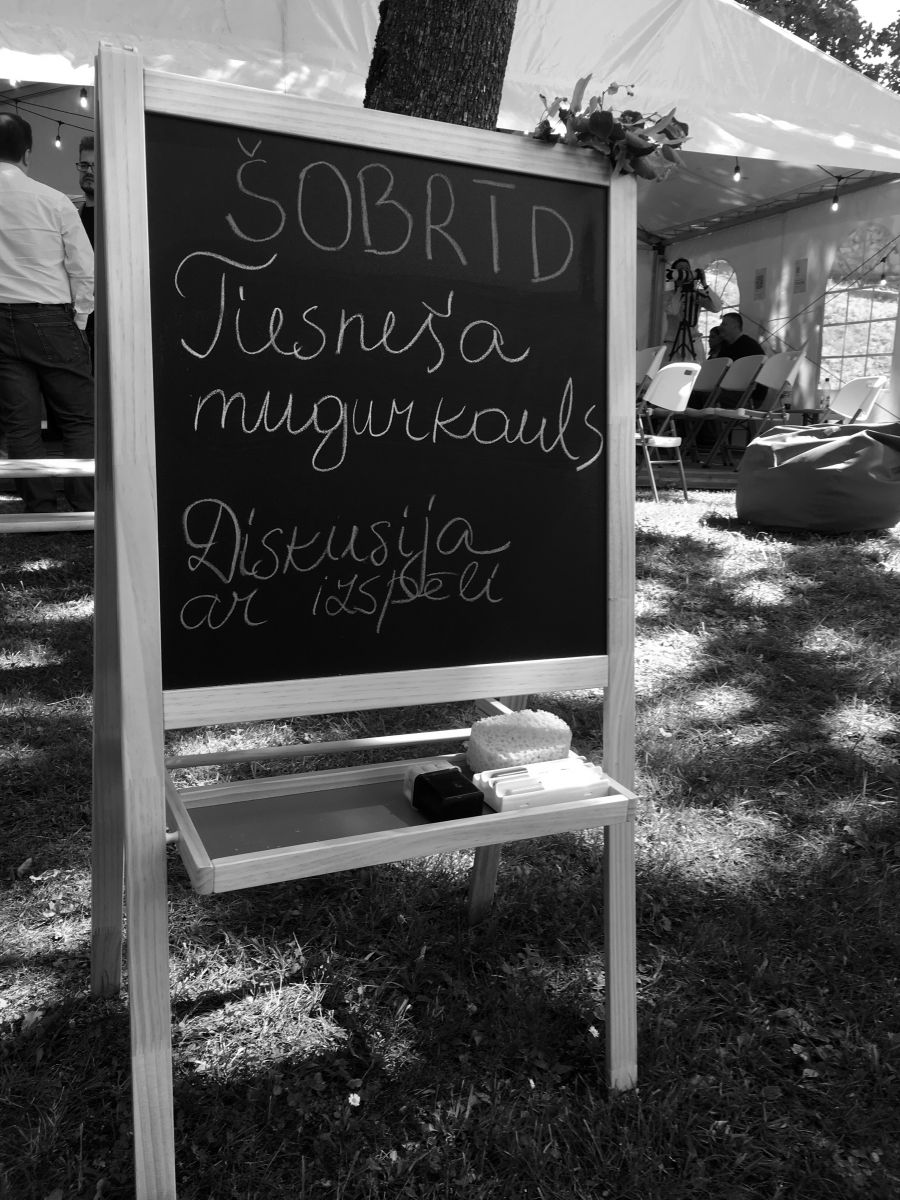 ŠOBRĪD
Tiesneša
mugurkauls
Diskusija
ar izspēli